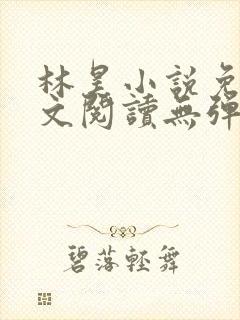 林昊小説免
文閱讀無彈
碧落輕舞